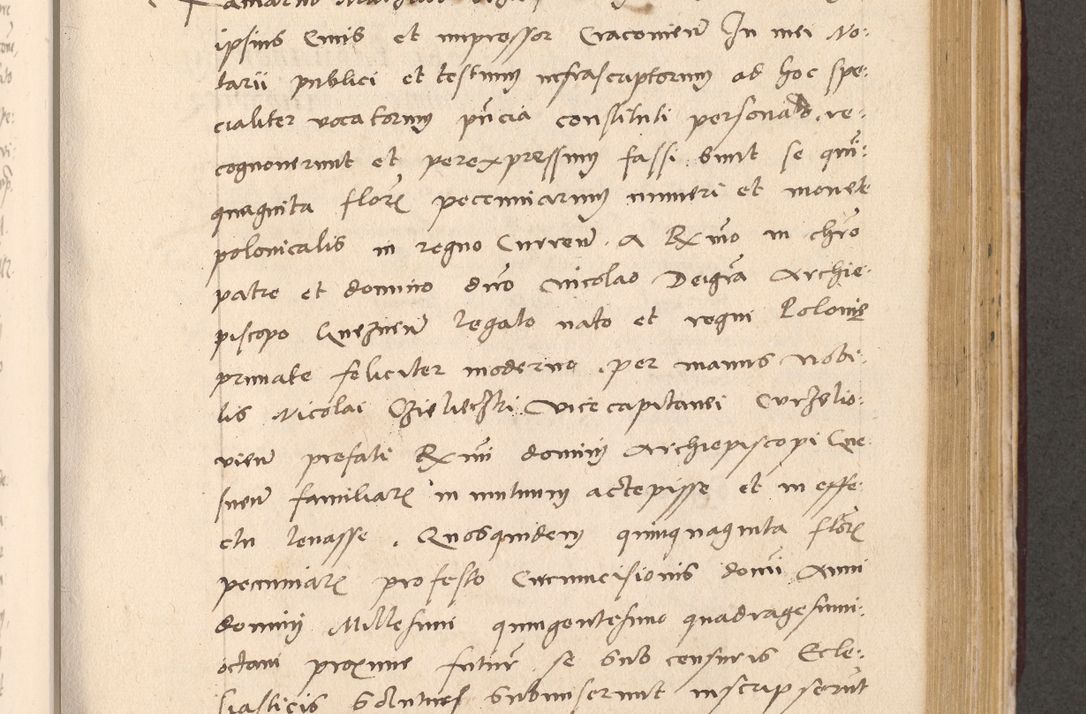 ipsius Civis et impressor Cracovien̄ In mei No-
tarii publici et testium infrascriptorum ad hoc spe-
cialiter vocatorum pn̄cia constituti personalr̄. re-
cognoverunt et perexpressum fassi sunt se quī-
quaginta florꝭ pecuniarum numeri et monete
polonicalis in regno Curren̄. A Rx̄mo in chr̄o
patre et domino dn̄o Nicolao Dei gr̄a Archie-
piscopo Gneznen̄ legato nato et regni Polonię
primate feliciter moderno. per manus Nobi-
lis Nicolai vicecapitanei Curzelio-
vien̄ prefati Rx̄mi domini Archiepiscopi Gne-
snen̄ familiarꝭ in mutuum accepisse et in effe-
ctu levasse. Quosquidem quinquaginta florꝭ
pecuniarꝭ pro festo Circumcisionis domī Anni
domini Millesimi quingentesimo quadragesimi-
octavi proxime futur̄ se sub censuris Eccle-
siasticis submiserunt inscripserūt